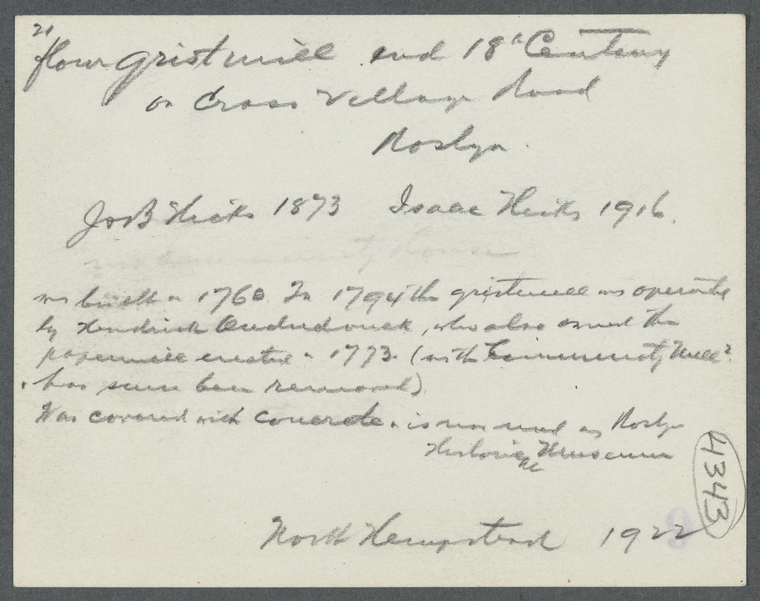 21
flour gristmill end 18th Century
on Cross Village Road
Roslyn.
Jos B Hicks 1873 Isaac Hicks 1916.
Community House
was built in 1760. In 1794 the gristmill was operated
by Hendrick Onderdonck, who also owned the
papermill erected in 1773. (with Community Mill?
has since been removed)
Was covered with concrete & is now used as Roslyn
Historical Museum
North Hempstead 1922
4343